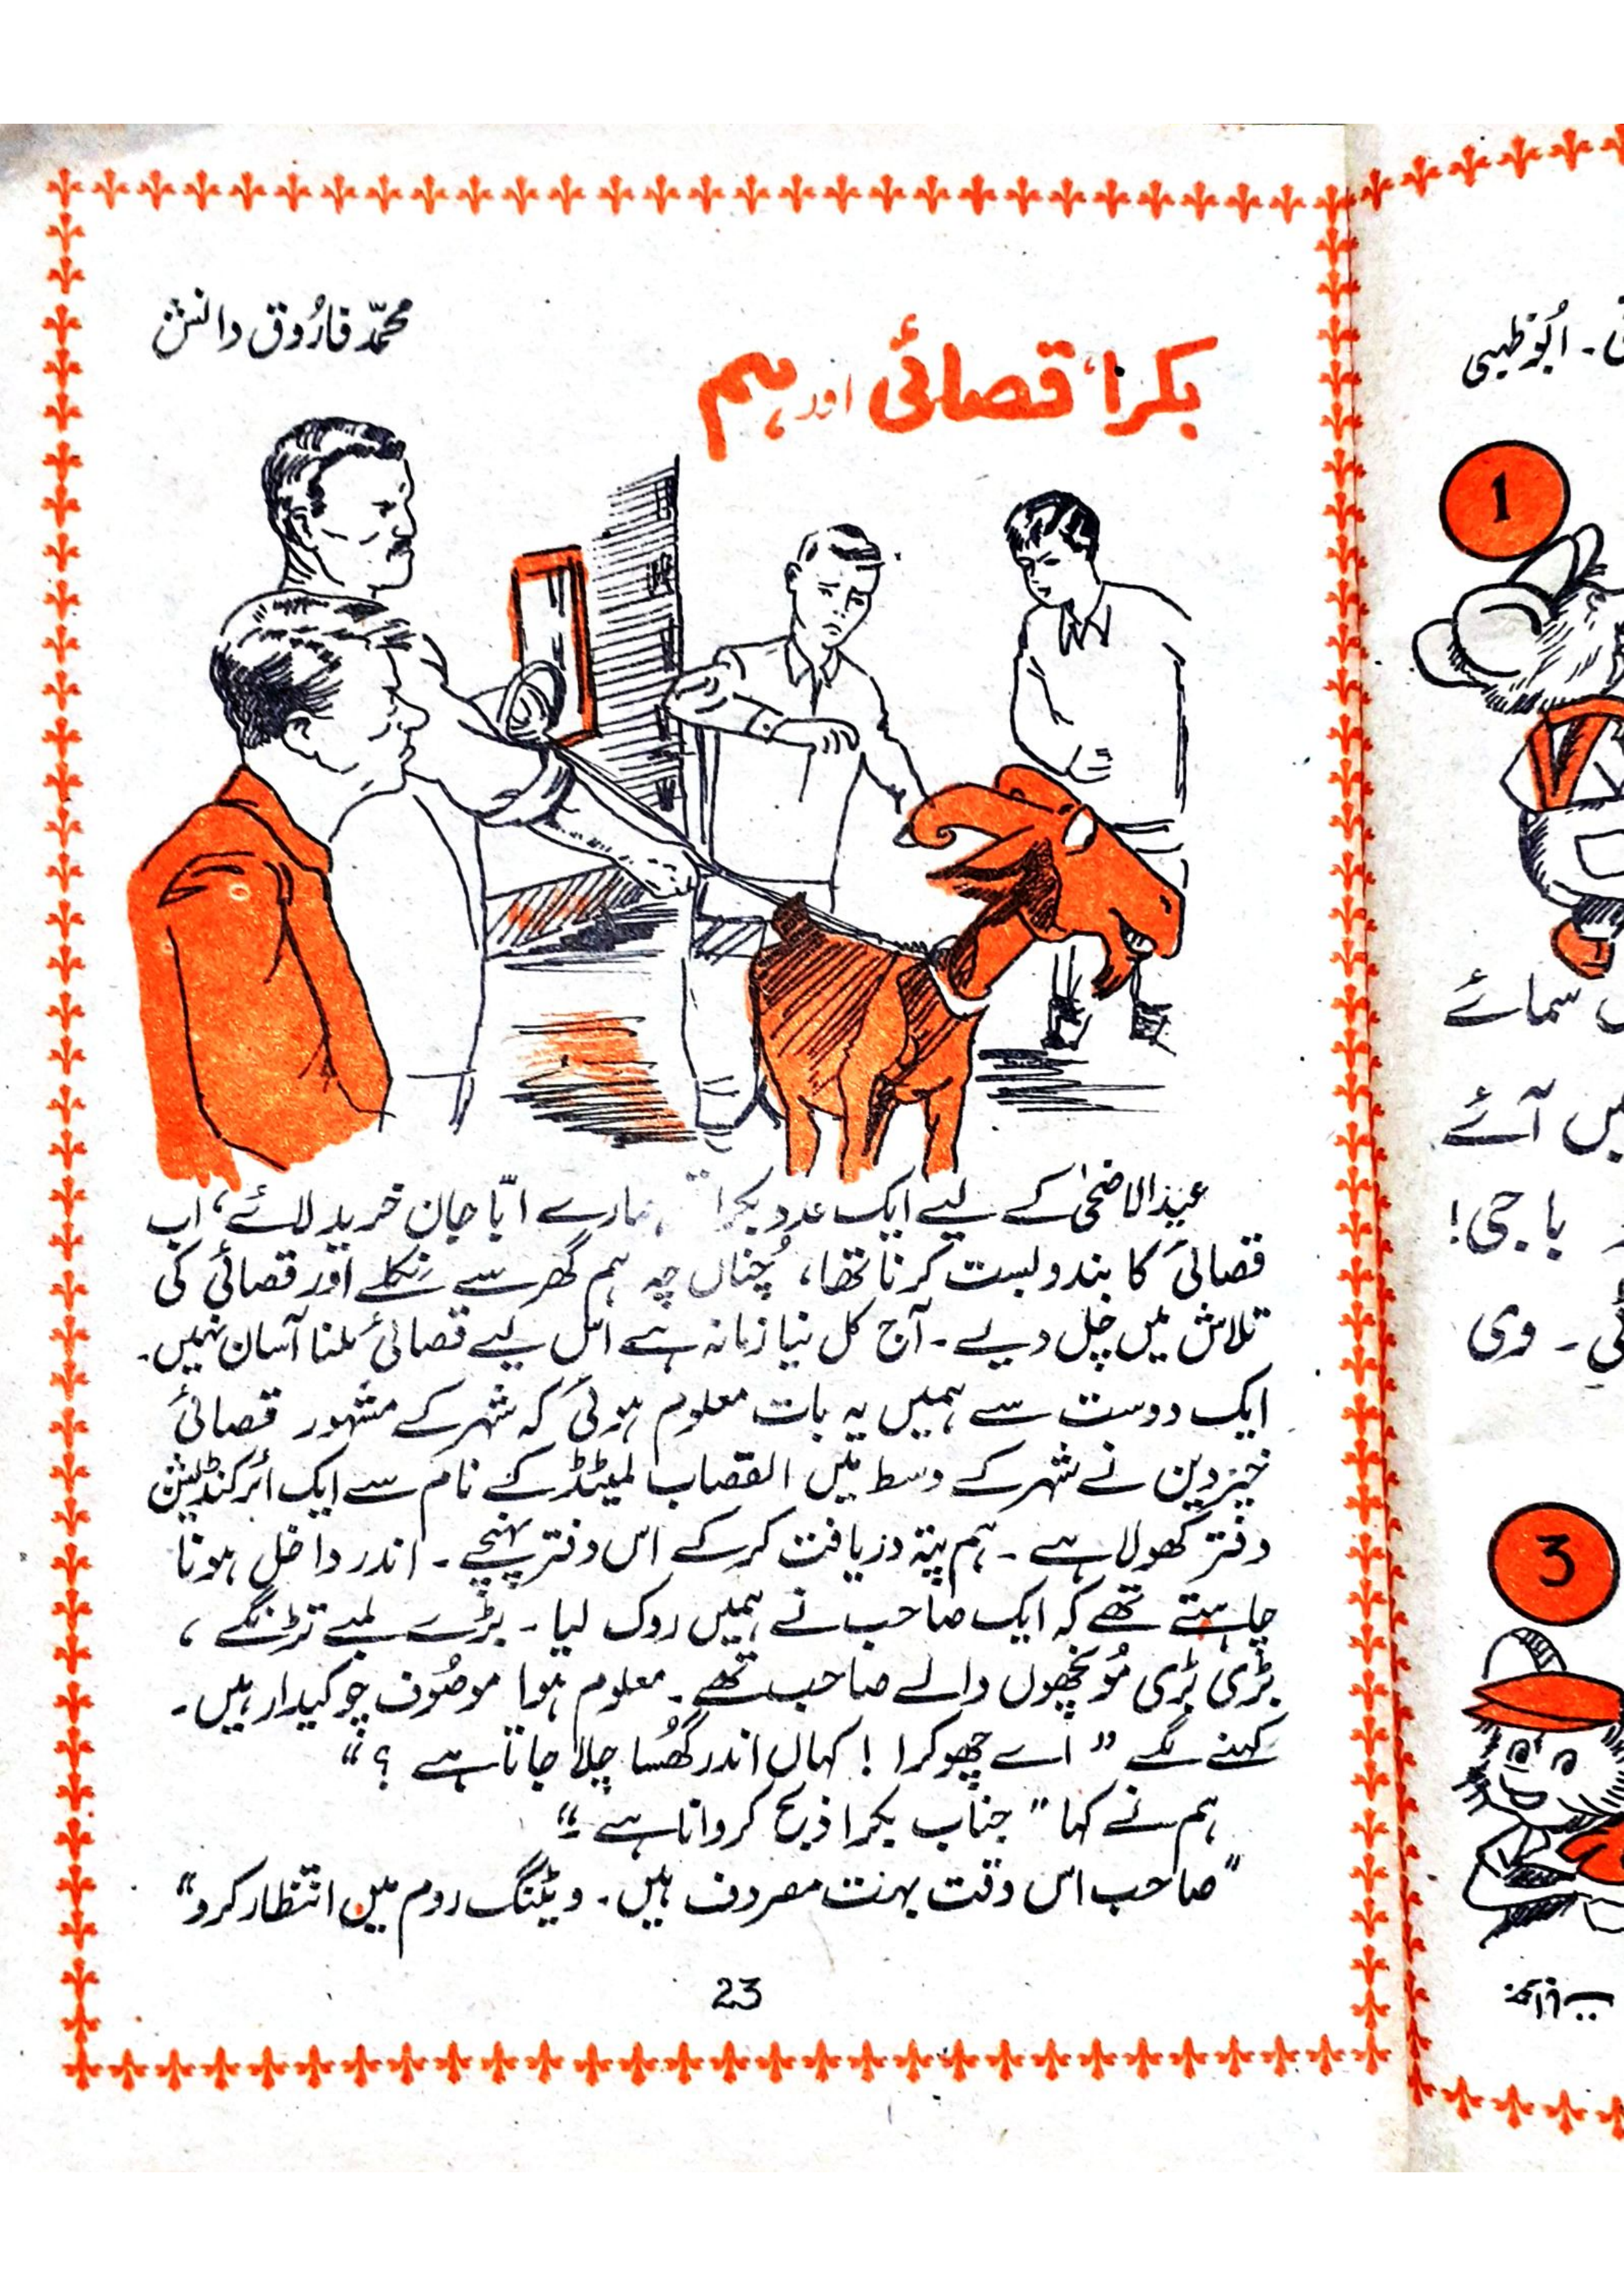 محمّد فارُوق دانش
بکرا، قصائی اور ہم
عیدالاضحیٰ کے لیے ایک عدد بکرا ہمارے ابّا جان خرید لائے، اب
قصائی کا بندوبست کرنا تھا، چُناں چہ ہم گھر سے نکلے اور قصائی کی
تلاش میں چل دیے۔ آج کل نیا زمانہ ہے اس لیے قصائی ملنا آسان نہیں۔
ایک دوست سے ہمیں یہ بات معلوم ہوئی کہ شہر کے مشہور قصائی
خیردین نے شہر کے وسط میں القصاب لمیٹڈ کے نام سے ایک ائرکنڈیشن
دفتر کھولا ہے۔ ہم پتہ دریافت کرکے اس دفتر پہنچے۔ اندر داخل ہونا
چاہتے تھے کہ ایک صاحب نے ہمیں روک لیا۔ بڑے لمبے تڑنگے،
بڑی بڑی مُونچھوں والے صاحب تھے۔ معلوم ہوا موصُوف چوکیدار ہیں۔
کہنے لگے "اے چھوکرا! کہاں اندر گھُسا چلا جاتا ہے؟"
ہم نے کہا "جناب بکرا ذبح کروانا ہے۔"
"صاحب اس وقت بہت مصروف ہیں۔ ویٹنگ روم میں انتظار کرو"
23
۔ ابُوظہبی
1
سمائے
میں آئے
باجی!
۔ وی
3